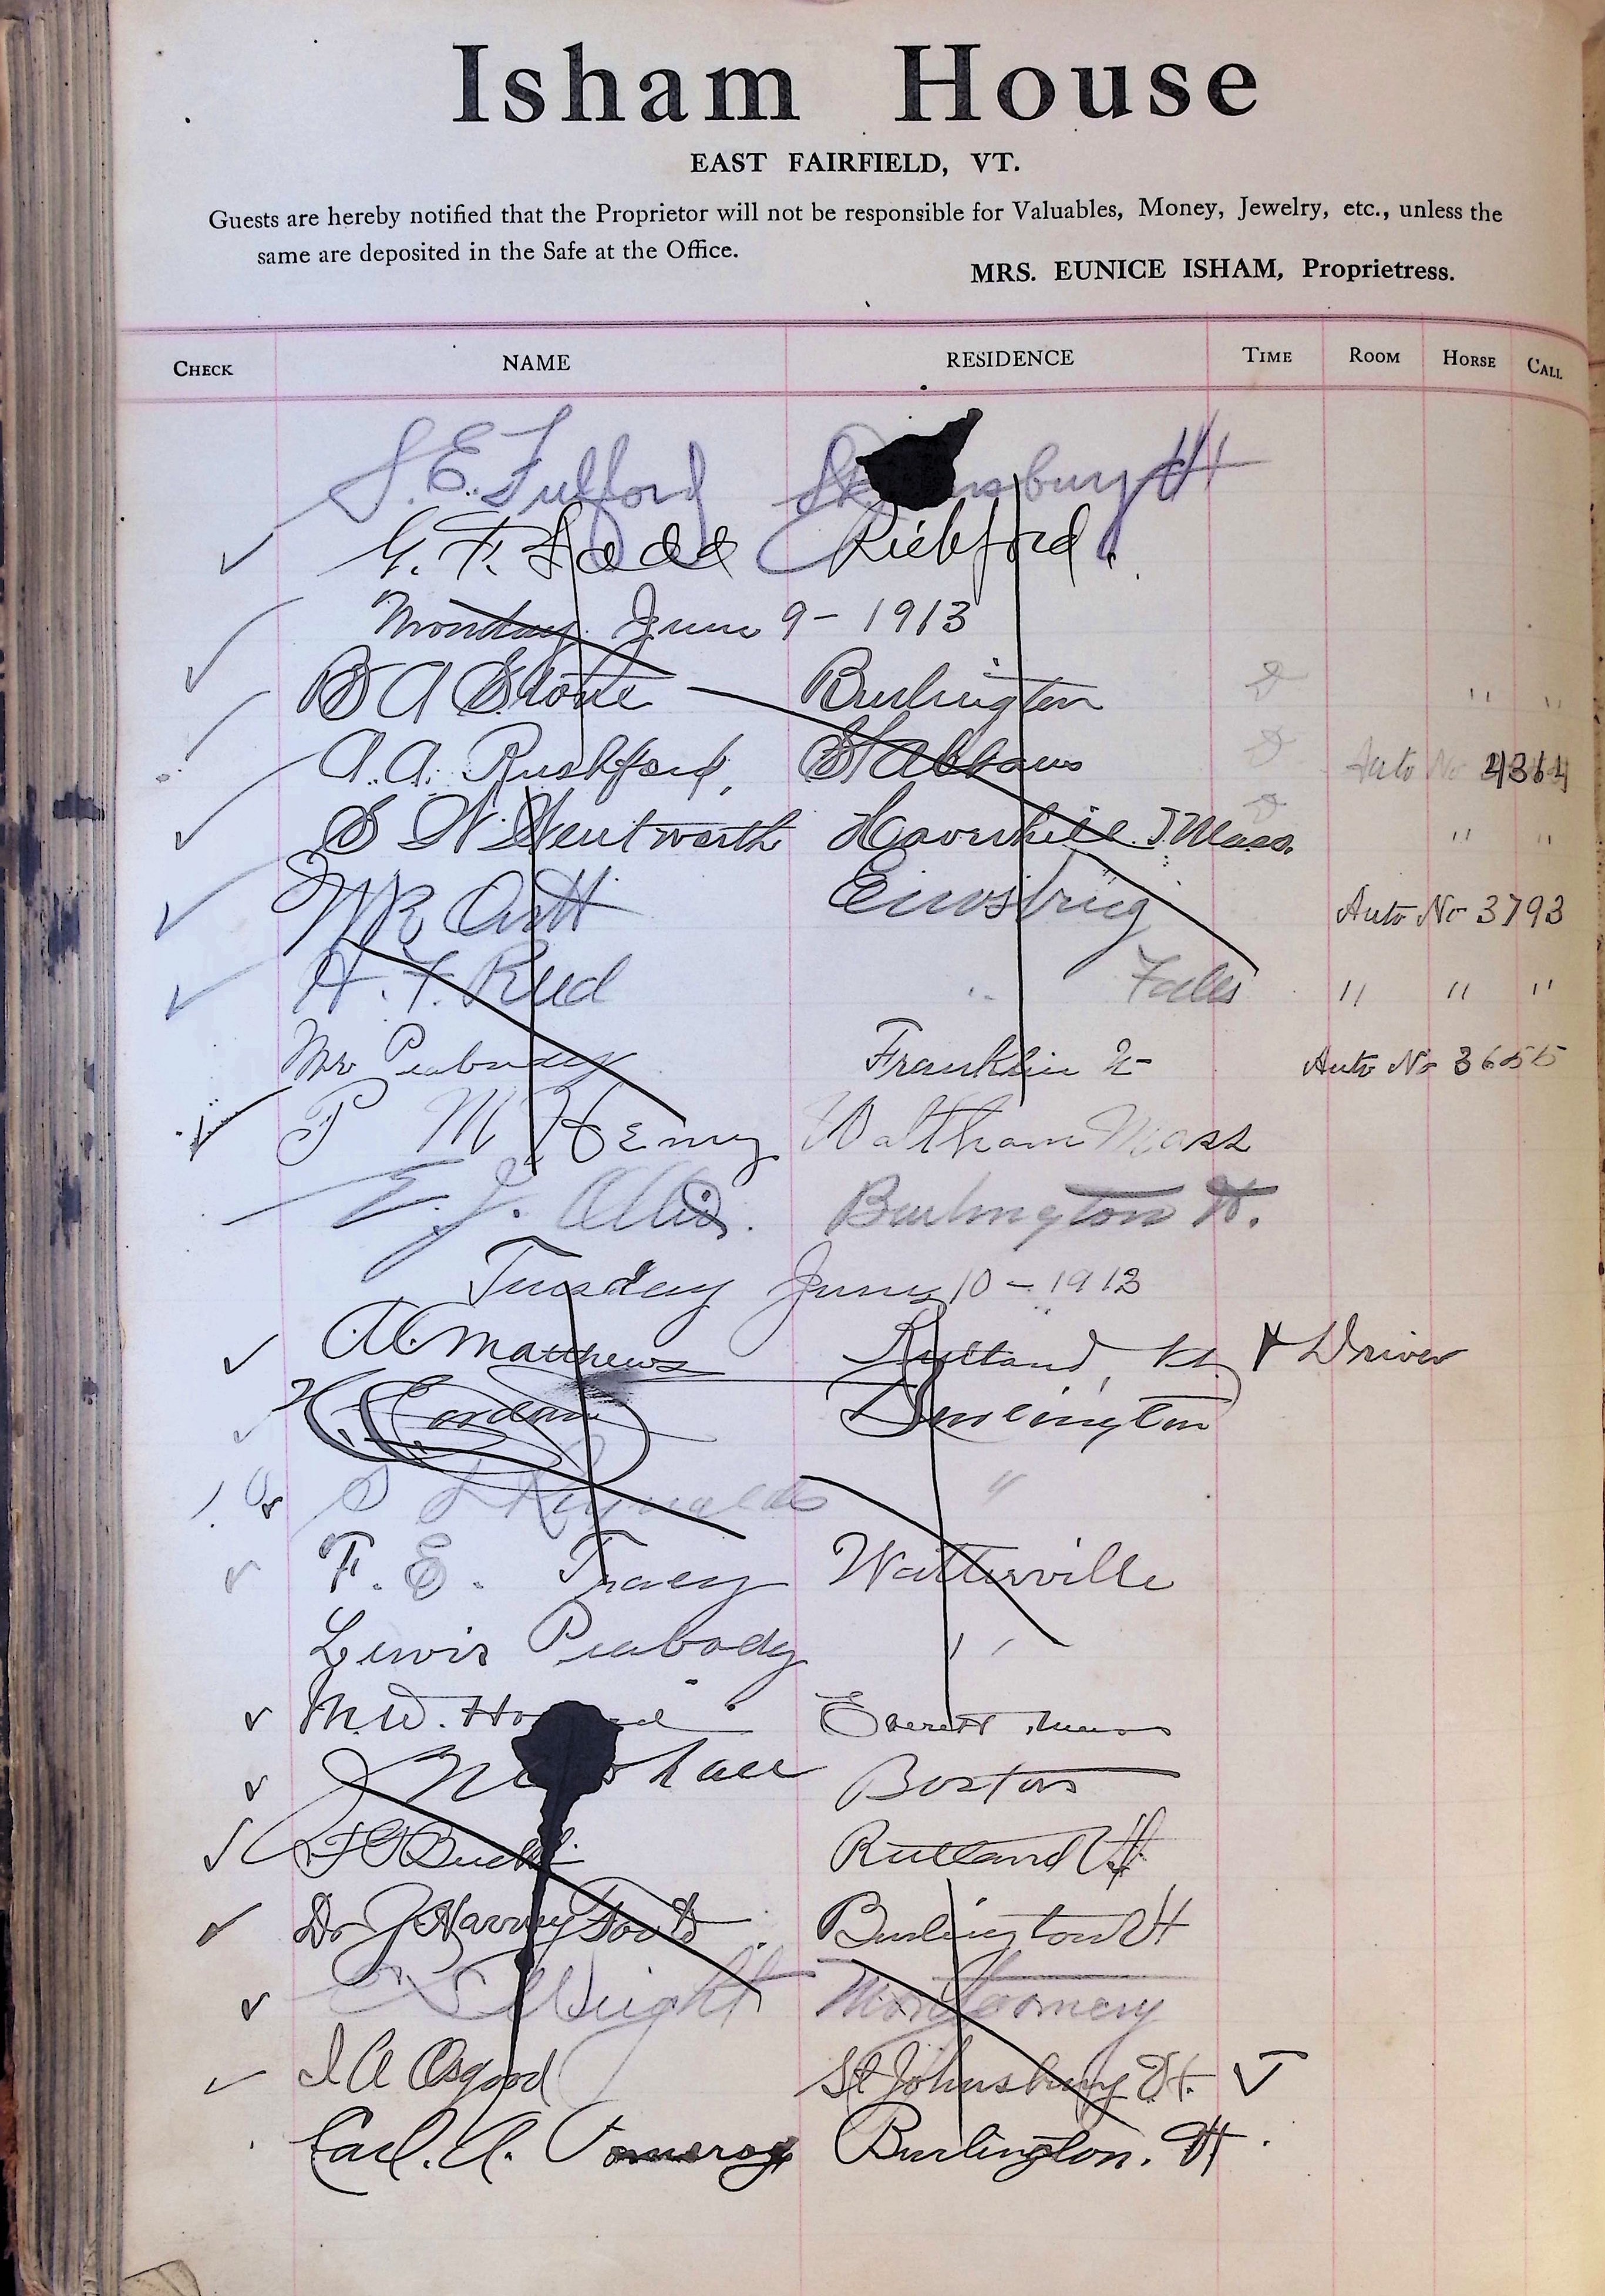 Isham House
EAST FAIRFIELD, VT.
Guests are hereby notified that the Proprietor will not be responsible for Valuables, Money, Jewelry, etc., unless the
same are deposited in the Safe at the Office.
MRS. EUNICE ISHAM, Proprietress.
CHECK NAME RESIDENCE TIME ROOM HORSE CALL
S. E. Fulford St nsbury Vt
G. F. Ladd Richford.
Monday June 9 - 1913
B A Stone Burlington " "
A. A. Rushford, St Albans Auto No 4364
S W Wentworth Haverhill Mass. " "
W R Enosburg Auto No 3793
H. F. Reed " Falls " " "
Mr Peabody Franklin Vt Auto No 3655
P M Henry Waltham Mass
E. J. Burlington Vt.
Tuesday June 10 - 1913
Matthews Rutland, Vt. + Driver
Burlington
S L Reynolds "
F. E. Tracy Watterville
Lewis Peabody " "
M. W. Ho d Everett Mass
hall Boston
Rutland Vt
Dr J Harvey Burlington Vt
Wright Montgomery
I A Osgood St Johnsbury Vt.
Earl. A. Pomeroy Burlington. Vt.